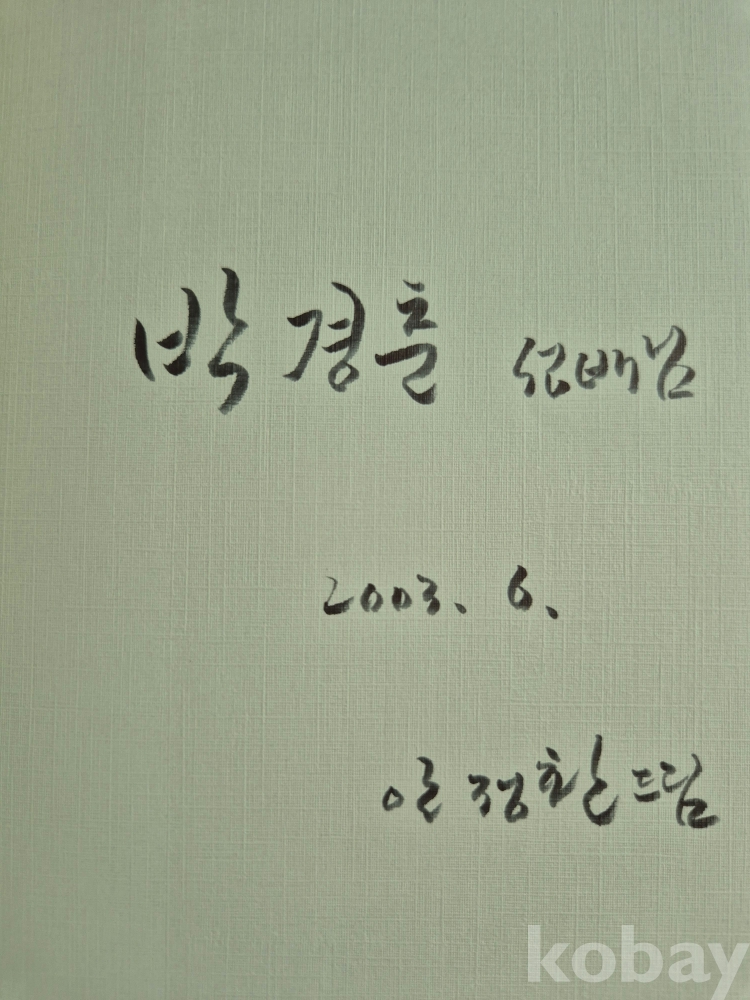 박경출 선배님
2003. 6.
정환 드림
kobay